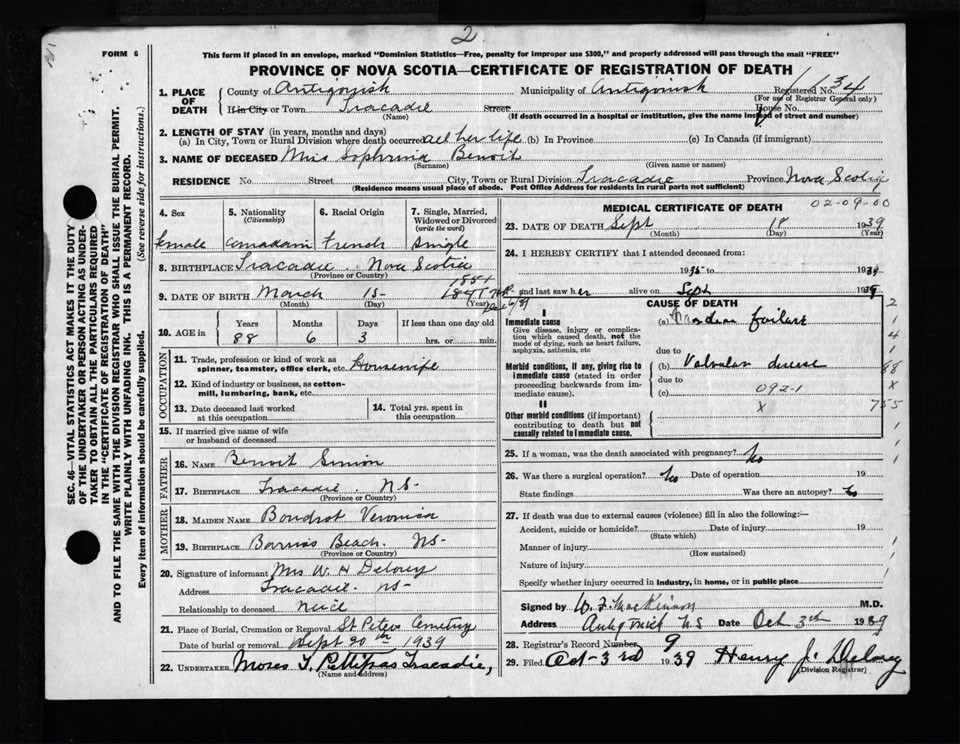 2
FORM 6
This form if placed in an envelope, marked "Dominion Statistics—Free, penalty for improper use $300," and properly addressed will pass through the mail "FREE"
PROVINCE OF NOVA SCOTIA—CERTIFICATE OF REGISTRATION OF DEATH
SEC. 46—VITAL STATISTICS ACT MAKES IT THE DUTY
OF THE UNDERTAKER OR PERSON ACTING AS UNDER-
TAKER TO OBTAIN ALL THE PARTICULARS REQUIRED
IN THE "CERTIFICATE OF REGISTRATION OF DEATH"
AND TO FILE THE SAME WITH THE DIVISION REGISTRAR WHO SHALL ISSUE THE BURIAL PERMIT.
WRITE PLAINLY WITH UNFADING INK. THIS IS A PERMANENT RECORD.
Every item of information should be carefully supplied. (See reverse side for instructions.)
1. PLACE OF DEATH County of Antigonish Municipality of Antigonish Registered No. 1134
(For use of Registrar General only)
If in City or Town Tracadie Street House No.
(Name) (If death occurred in a hospital or institution, give the name instead of street and number)
2. LENGTH OF STAY (in years, months and days)
(a) In City, Town or Rural Division where death occurred all her life (b) In Province (c) In Canada (if immigrant)
3. NAME OF DECEASED Miss Benoit
(Surname) (Given name or names)
RESIDENCE No. Street City, Town or Rural Division Tracadie Province Nova Scotia
(Residence means usual place of abode. Post Office Address for residents in rural parts not sufficient)
4. Sex 5. Nationality (Citizenship) 6. Racial Origin 7. Single, Married, Widowed or Divorced (write the word)
female Canadian French Single
8. BIRTHPLACE Tracadie Nova Scotia
(Province or Country)
1851
9. DATE OF BIRTH March 15
(Month) (Day) (Year)
10. AGE in Years Months Days If less than one day old
88 6 3 hrs. or min.
OCCUPATION
11. Trade, profession or kind of work as
spinner, teamster, office clerk, etc. Housewife
12. Kind of industry or business, as cotton-
mill, lumbering, bank, etc.
13. Date deceased last worked
at this occupation
14. Total yrs. spent in
this occupation
15. If married give name of wife
or husband of deceased
FATHER
16. NAME Benoit Simion
17. BIRTHPLACE Tracadie NS
(Province or Country)
MOTHER
18. MAIDEN NAME Boudrot Veronica
19. BIRTHPLACE Barrios Beach NS
(Province or Country)
20. Signature of informant Mrs W H Delorey
Address Tracadie NS
Relationship to deceased neice
21. Place of Burial, Cremation or Removal St Peters Cemetry
Date of burial or removal Sept 20th 1939
22. UNDERTAKER Moses T. Pettipas Tracadie,
(Name and address)
MEDICAL CERTIFICATE OF DEATH 02-09-00
23. DATE OF DEATH Sept 18 1939
(Month) (Day) (Year)
24. I HEREBY CERTIFY that I attended deceased from:
1935 to 1939
and last saw her alive on Sept 1939
CAUSE OF DEATH
I
Immediate cause
Give disease, injury or complica-
tion which caused death, not the
mode of dying, such as heart failure,
asphyxia, asthenia, etc
(a) Cardiac failure
due to
Morbid conditions, if any, giving rise to
immediate cause (stated in order
proceeding backwards from im-
mediate cause).
(b) Valvular disease
due to
(c) 092-1
II
Other morbid conditions (if important)
contributing to death but not
causally related to immediate cause.
X
2
1
4
1
88
X
755
25. If a woman, was the death associated with pregnancy? No
26. Was there a surgical operation? No Date of operation 19
State findings Was there an autopsy? No
27. If death was due to external causes (violence) fill in also the following:—
Accident, suicide or homicide? Date of injury 19
(State which)
Manner of injury
(How sustained)
Nature of injury
Specify whether injury occurred in industry, in home, or in public place
Signed by W. F. MacKinnon M.D.
Address Antigonish NS Date Oct 3th 1939
28. Registrar's Record Number 9
29. Filed Oct-3rd 1939 Henry J. Delorey
(Division Registrar)